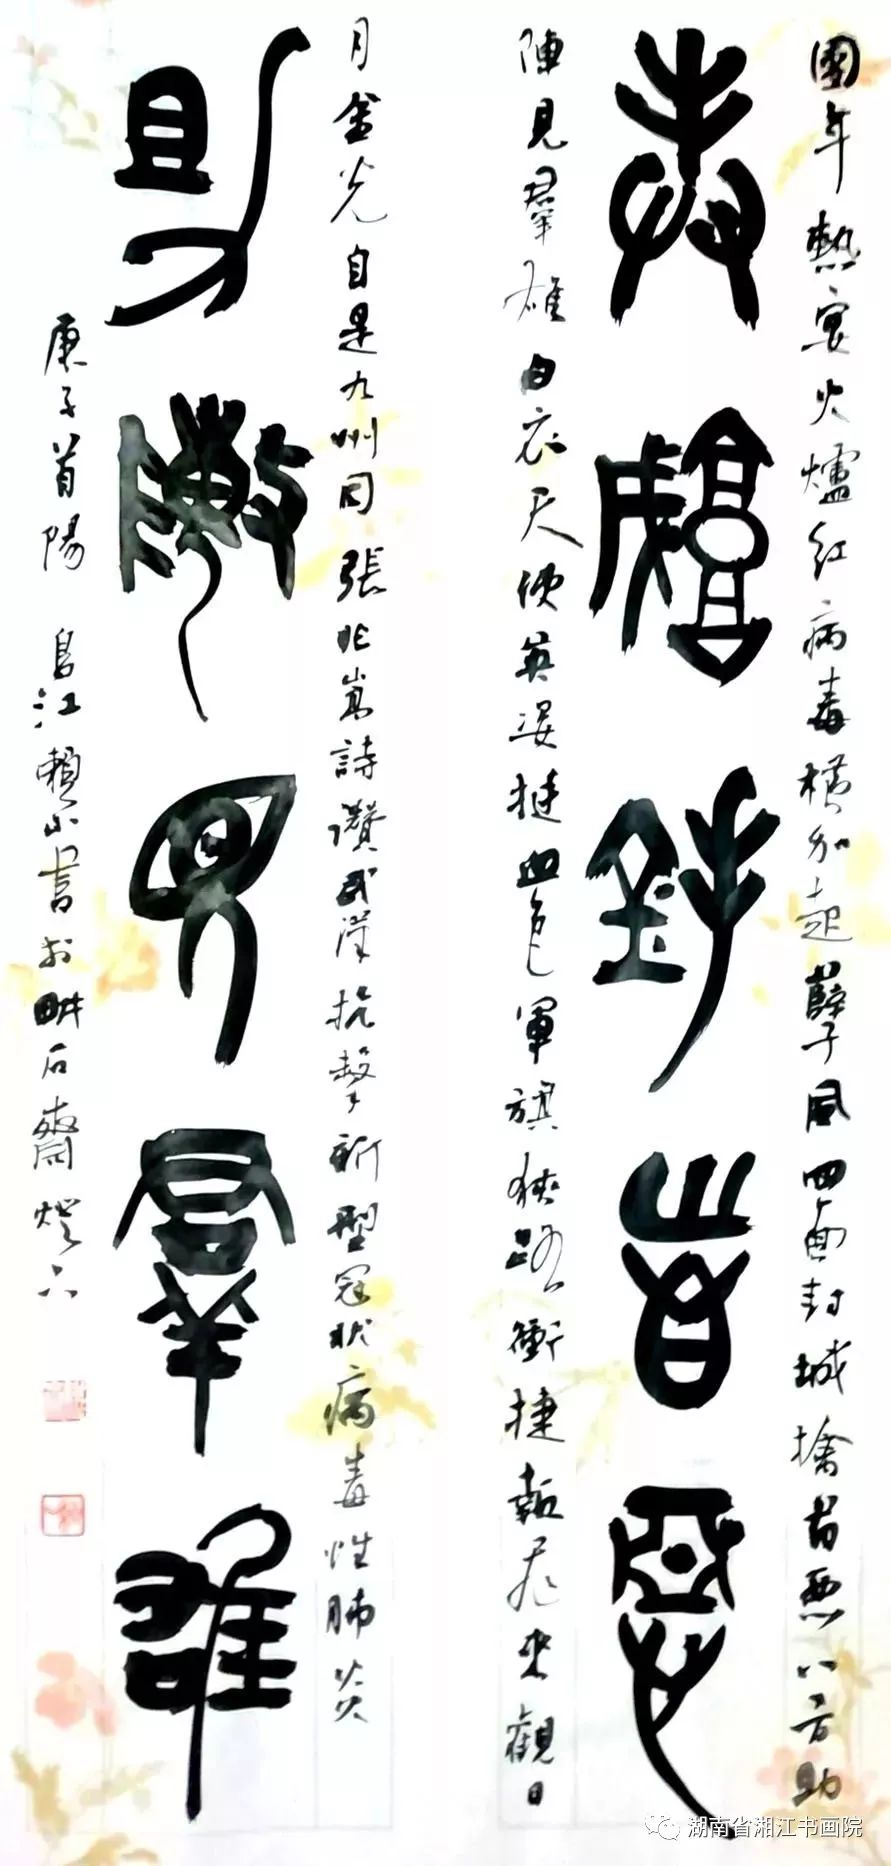 團年熱宴火爐紅病毒橫加起孽子風四面封城擒首惡八方助
封城擒首惡
陣見羣雄白衣天使英姿挺血色軍旗狹路衝捷報飛來觀日
月金光自是九州同張詩讚武漢抗擊新型冠狀病毒性肺炎
助陣見羣雄
庚子首陽 江賴書於畊石齋燈下
湖南省湘江书画院